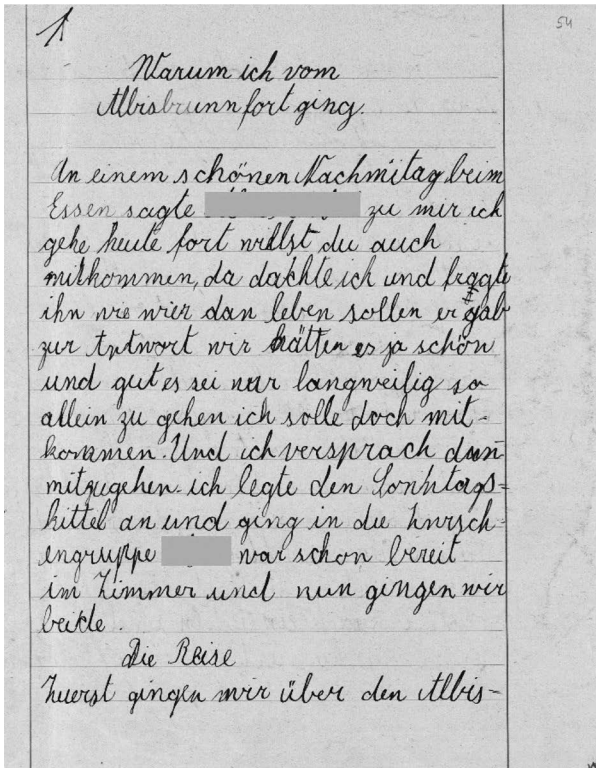 1
54
Warum ich vom
Albisbrunn fort ging.
An einem schönen Nachmitag beim
Essen sagte zu mir ich
gehe heute fort willst du auch
mitkommen, da dachte ich und fragte
ihn wie wier dan leben sollen er gab
zur Antwort wir hätten es ja schön
und gut es sei nur langweilig so
allein zu gehen ich solle doch mit-
kommen. Und ich versprach dann
mitzugehen. ich legte den Sonntags-
kittel an und ging in die
engruppe war schon bereit
im Zimmer und nun gingen wir
beide.
Die Reise
Zuerst gingen wir über den Albis-